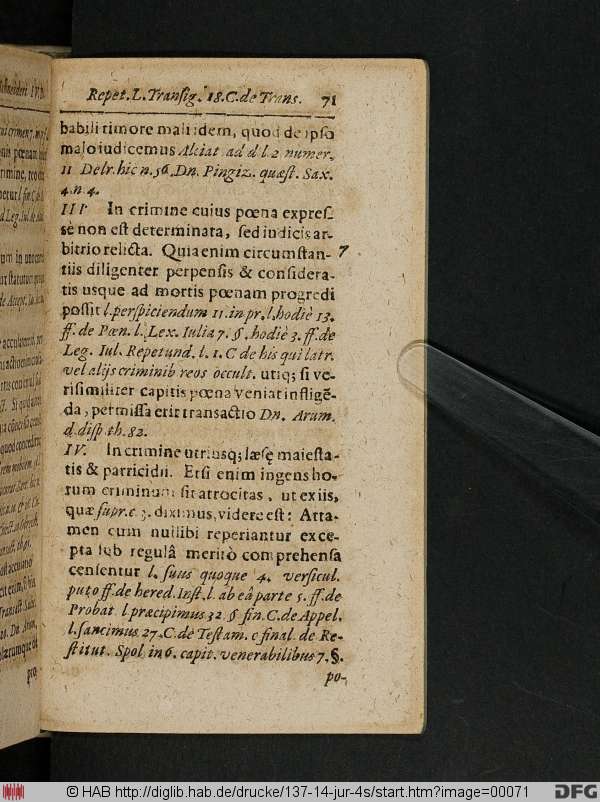 Repet. L. Transig. 18. C. de Trans. 71
babili timore mali idem, quod de ipso
malo iudicemus Alciat. ad d l. 2. numer.
11 Delr. hic n. 56. Dn. Pingiz. quæst. Sax.
4. n. 4.
III In crimine cuius pœna expres-
sè non est determinata, sed iudicis ar-
bitrio relicta. Quia enim circumstan- 7
tiis diligenter perpensis & considera-
tis usque ad mortis pœnam progredi
possit l. perspiciendum 11. in pr. l. hodiè 13.
ff. de Pœn. l. Lex. Iulia 7. §. hodiè 3. ff. de
Leg. Iul. Repetund. l. 1. C de his qui latr.
vel alijs criminib reos occult. utiq; si ve-
risimiliter capitis pœna veniat infligẽ-
da, permissa erit transactio Dn. Arum.
d. disp. th. 82.
IV. In crimine utriusq; læsę maiesta-
tis & patricidii. Etsi enim ingens ho-
rum criminum sit atrocitas, ut ex iis,
quæ supr. c. 3. diximus, videre est: Atta-
men cum nullibi reperiantur exce-
pta sub regulâ meritò comprehensa
censentur l. suus quoque 4. versicul.
puto ff. de hered. Inst. l. ab eâ parte 5. ff. de
Probat. l præcipimus 32. § fin. C. de Appel.
l. sancimus 27. C. de Testam. c final. de Re-
stitut. Spol. in 6. capit. venerabilibus 7. §.
po-
pro
© HAB http://diglib.hab.de/drucke/137-14-jur-4s/start.htm?image=00071
DFG